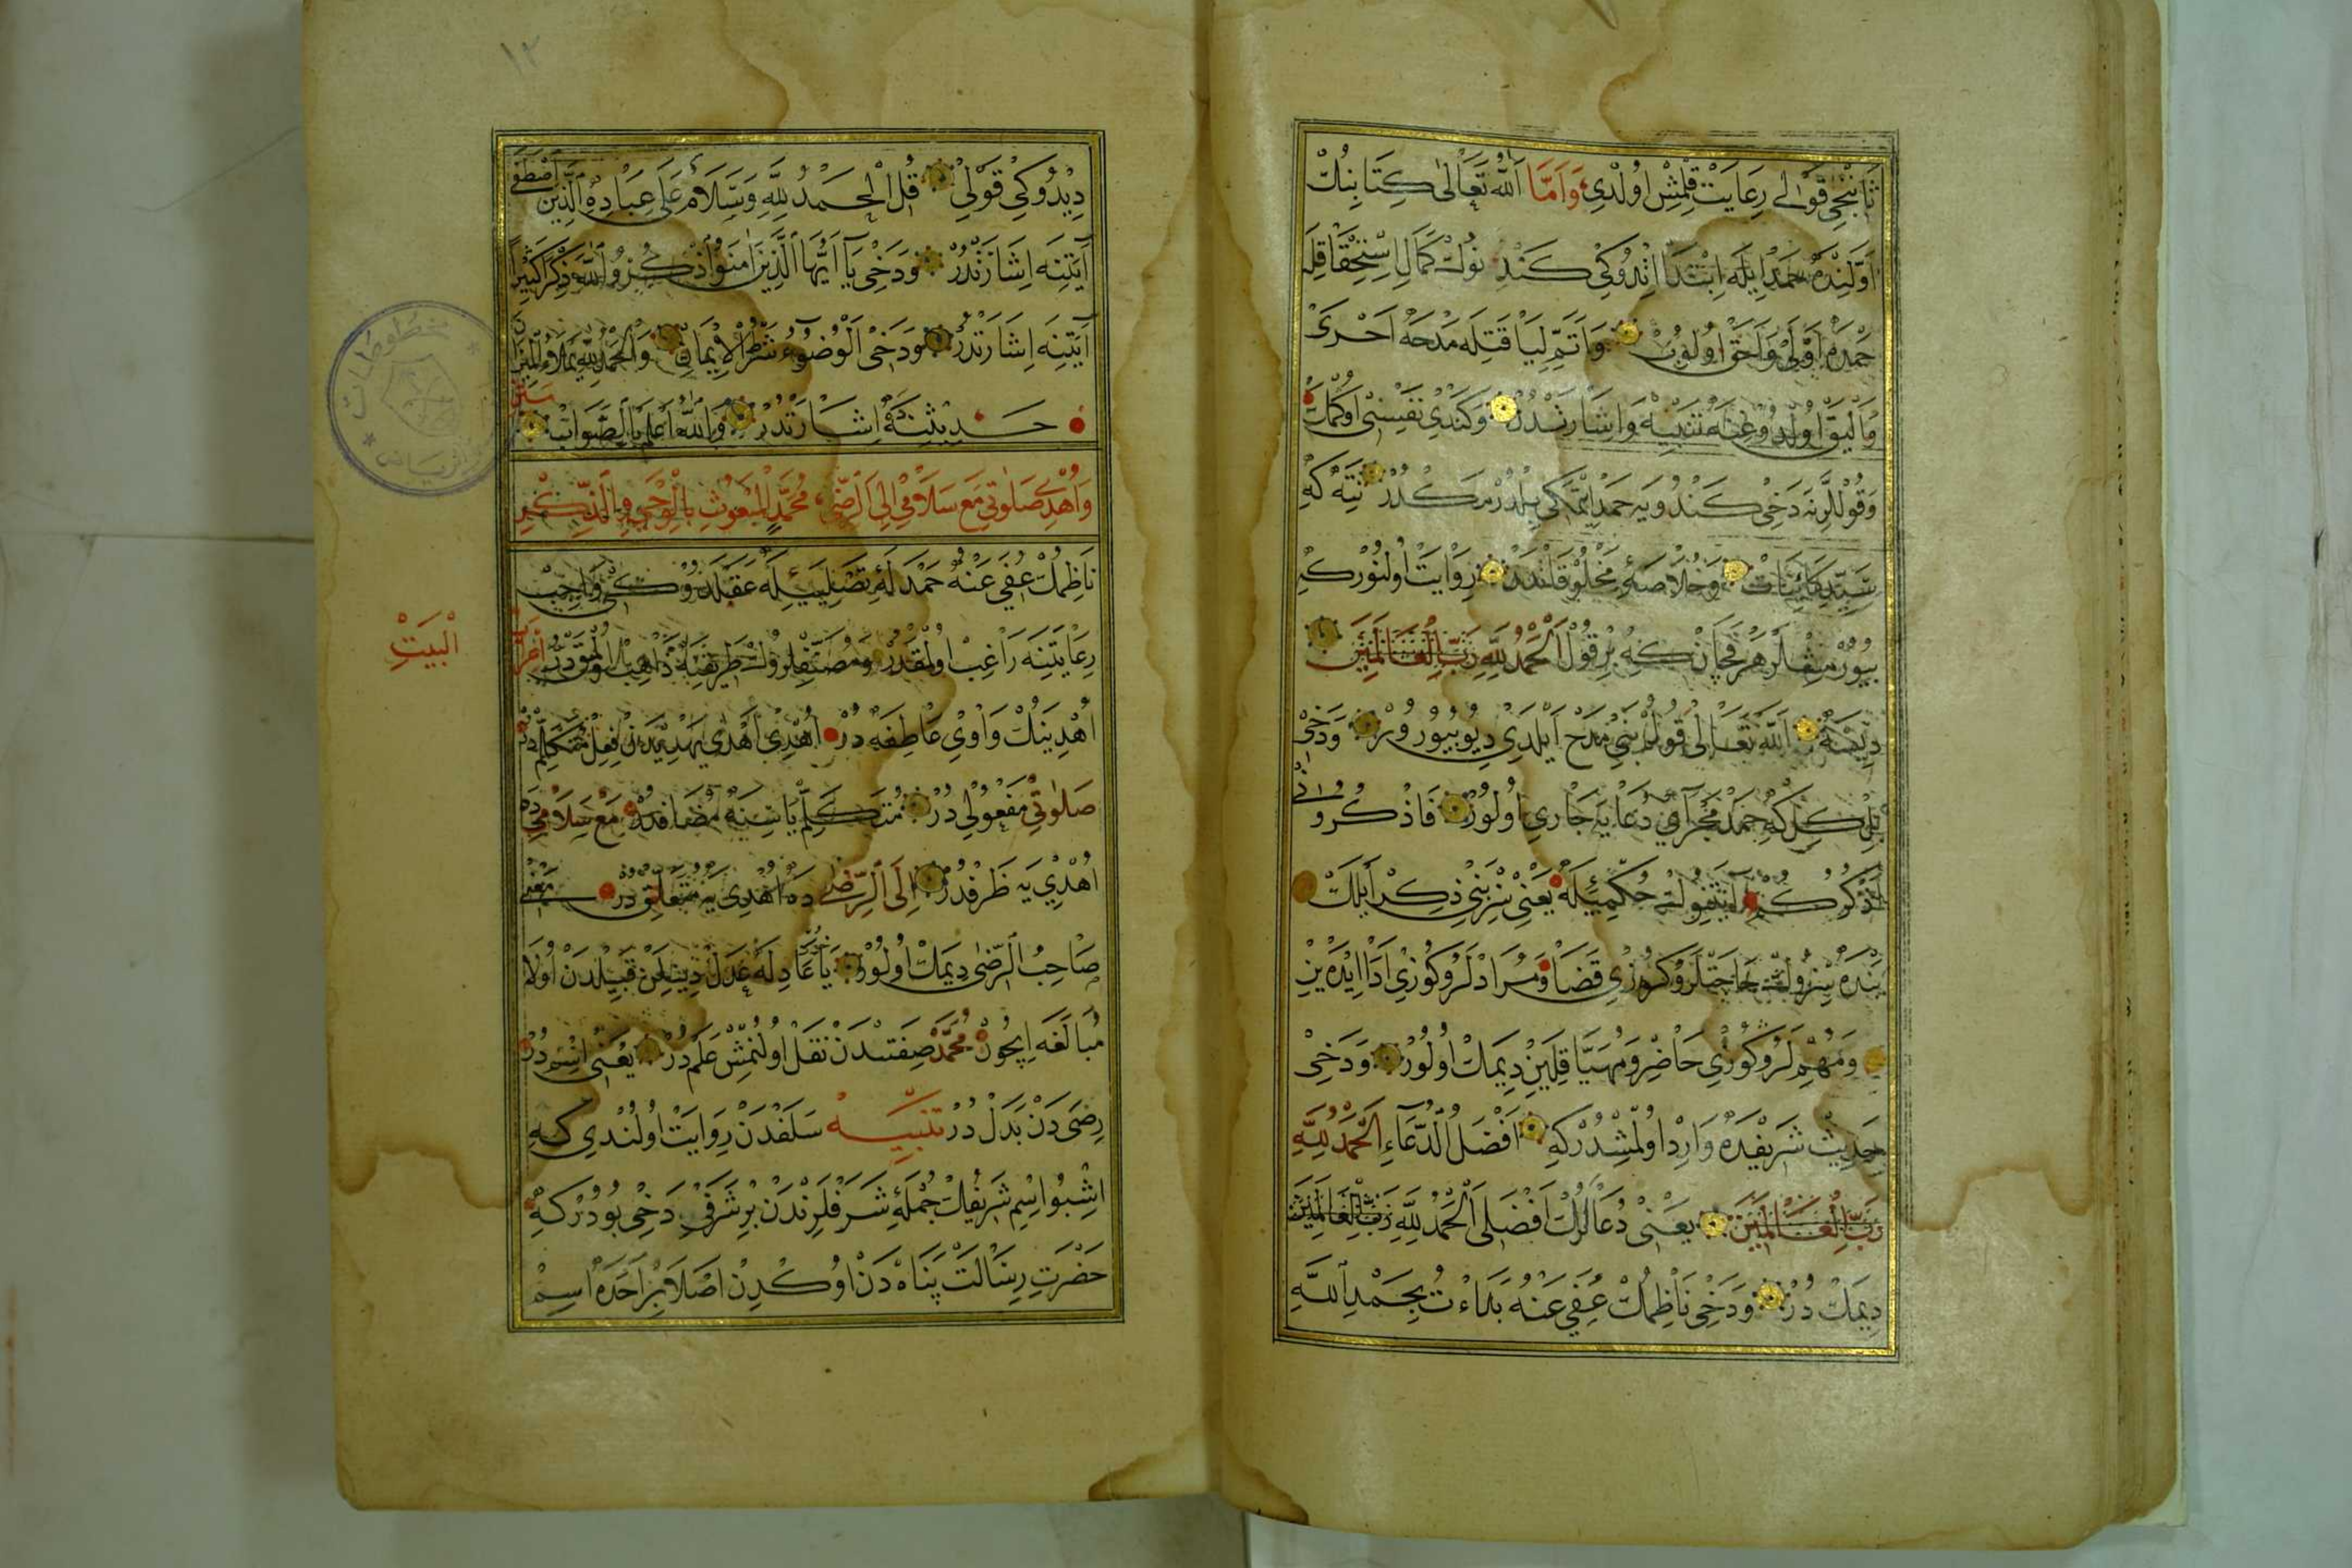 ثَانِنْجِى قَوْلِى رِعَايَتْ قِلْمِشْ اُولْدِى وَاَمَّا اَللّٰهُ تَعَالٰى كِتَابِنُكْ
اَوَّلِنْدَه حَمْدْ اِيلَه اِبْتِدَا اِتْدُوكِى كَنْدِينُوكْ كَمَالِ اِسْتِحْقَاقِلَه
حَمْدَه اَوْلٰى وَاَحَقّ اُولُوبْ وَاَتَمِّ لِيَاقَتِلَه مَدْحَه اَحْرٰى
وَاَلْيَقْ اُولْدُوغِنَه تَنْبِيهْ وَاِشَارَتْدُرْ وَكَنْدِى نَفْسِنِى اُوكْمَكْ
وَقُوللَّرِنَه دَخِى كَنْدُويَه حَمْدْ اِتْمَكِى بِلْدُرْمَكْدُرْ نِتَه كِه
سَيِّدِ كَائِنَاتْ وَخُلَاصَهءِ مَخْلُوقَاتْدَنْ رِوَايَتْ اُولُنُورْ كِه
بُيُورْمِشْلَرْ هَرْ قَچَانْ كِه بِرْ قُولْ اَلْحَمْدُ لِلّٰهِ رَبِّ الْعَالَمِينَ
دِيسَه اَللّٰهُ تَعَالٰى قُولُمْ بَنِى مَدْحْ اَيْلَدِى دِيُو بُيُورُورْ وَدَخِى
بِلْ كِلْ كِه حَمْدْ مَجْرَاىِ دُعَايَه جَارِى اُولُورْ فَاذْكُرُونِى
اَذْكُرْكُمْ آيَتِنُوكْ حُكْمِيلَه يَعْنِى سِزْ بَنِى ذِكْرْ اَيْلَكْ
بَنْدَه سِزُوكْ حَاجَتْلَرُوكُوزِى قَضَا وَمُرَادْلَرُوكُوزِى اَدَا اِيدَه يِنْ
وَمُهِمْلَرُوكُوزِى حَاضِرْ وَمُهَيَّا قِلَيِنْ دِيمَكْ اُولُورْ وَدَخِى
حَدِيثْ شَرِيفْدَه وَارِدْ اُولْمِشْدُرْ كِه اَفْضَلُ الدُّعَاءِ اَلْحَمْدُ لِلّٰهِ
رَبِّ الْعَالَمِينَ يَعْنِى دُعَالَرُكْ اَفْضَلِى اَلْحَمْدُ لِلّٰهِ رَبِّ الْعَالَمِينَ
دِيمَكْ دُرْ وَدَخِى نَاظِمُكْ عُفِىَ عَنْهُ بَدَاءْتُ بِحَمْدِ اللّٰهِ
١٢
دِيدُوكِى قَوْلِى قُلِ الْحَمْدُ لِلّٰهِ وَسَلَامٌ عَلٰى عِبَادِهِ الَّذِينَ اصْطَفٰى
آيَتِنَه اِشَارَتْدُرْ وَدَخِى يَا اَيُّهَا الَّذِينَ اٰمَنُوا اذْكُرُوا اللّٰهَ ذِكْرًا كَثِيرًا
آيَتِنَه اِشَارَتْدُرْ وَدَخِى اَلْوُضُوءُ شَطْرُ الْاِيمَانِ وَالْحَمْدُ لِلّٰهِ يَمْلَاُ الْمِيزَانَ
حَدِيثِنَه اِشَارَتْدُرْ وَاللّٰهُ اَعْلَمُ بِالصَّوَابْ
وَاُهْدِى صَلٰوتِى مَعَ سَلَامِى اِلَى الرِّضٰى مُحَمَّدٍ الْمَبْعُوثِ بِالْوَحْىِ
نَاظِمُكْ عُفِىَ عَنْهُ حَمْدَلَه تَصْلِيَه عَقِبِنْدَنْ وَاجِبْ
رِعَايَتِنَه رَاغِبْ اُولْمَقْدُرْ وَمُصَنِّفْلَرُوكْ طَرِيقِنَه ذَاهِبْ اُولْمَقْدُرْ اِعْرَابْ
الْبَيَتْ
اُهْدِينُكْ وَاوِى عَاطِفَه دُرْ اُهْدِى اَهْدٰى يُهْدِى دَنْ فِعْلِ مُتَكَلِّمْدُرْ
صَلٰوتِى مَفْعُولِى دُرْ مُتَكَلِّمْ يَاسِنَه مُضَافْدُرْ مَعْ سَلَامِى دَه
اُهْدِى يَه ظَرْفْدُرْ اِلَى الرِّضٰى دَه اُهْدِى يَه مُتَعَلِّقْدُرْ مَعْنِى
صَاحِبُ الرِّضٰى دِيمَكْ اُولُورْ يَا عَادِلَه عَدْلْ دِيمَكْ قَبِيلِنْدَنْ اُولَا
مُبَالَغَه اِيچُونْ مُحَمَّدْ صِفَتْدَنْ نَقْلْ اُولُنْمِشْ عَلَمْ دُرْ يَعْنِى اِسِمْ دُرْ
رِضٰى دَنْ بَدَلْ دُرْ تَنْبِيهْ سَلَفْدَنْ رِوَايَتْ اُولُنْدِى كِه
اِشْبُو اِسْمِ شَرِيفُكْ جُمْلَهءِ شَرَفْلَرِنْدَنْ بِرْ شَرَفِى دَخِى بُودُرْ كِه
حَضْرَتِ رِسَالَتْ پَنَاهْ دَنْ اُوكْدِنْ اَصْلَا بِرْ اَحَدَه اِسِمْ